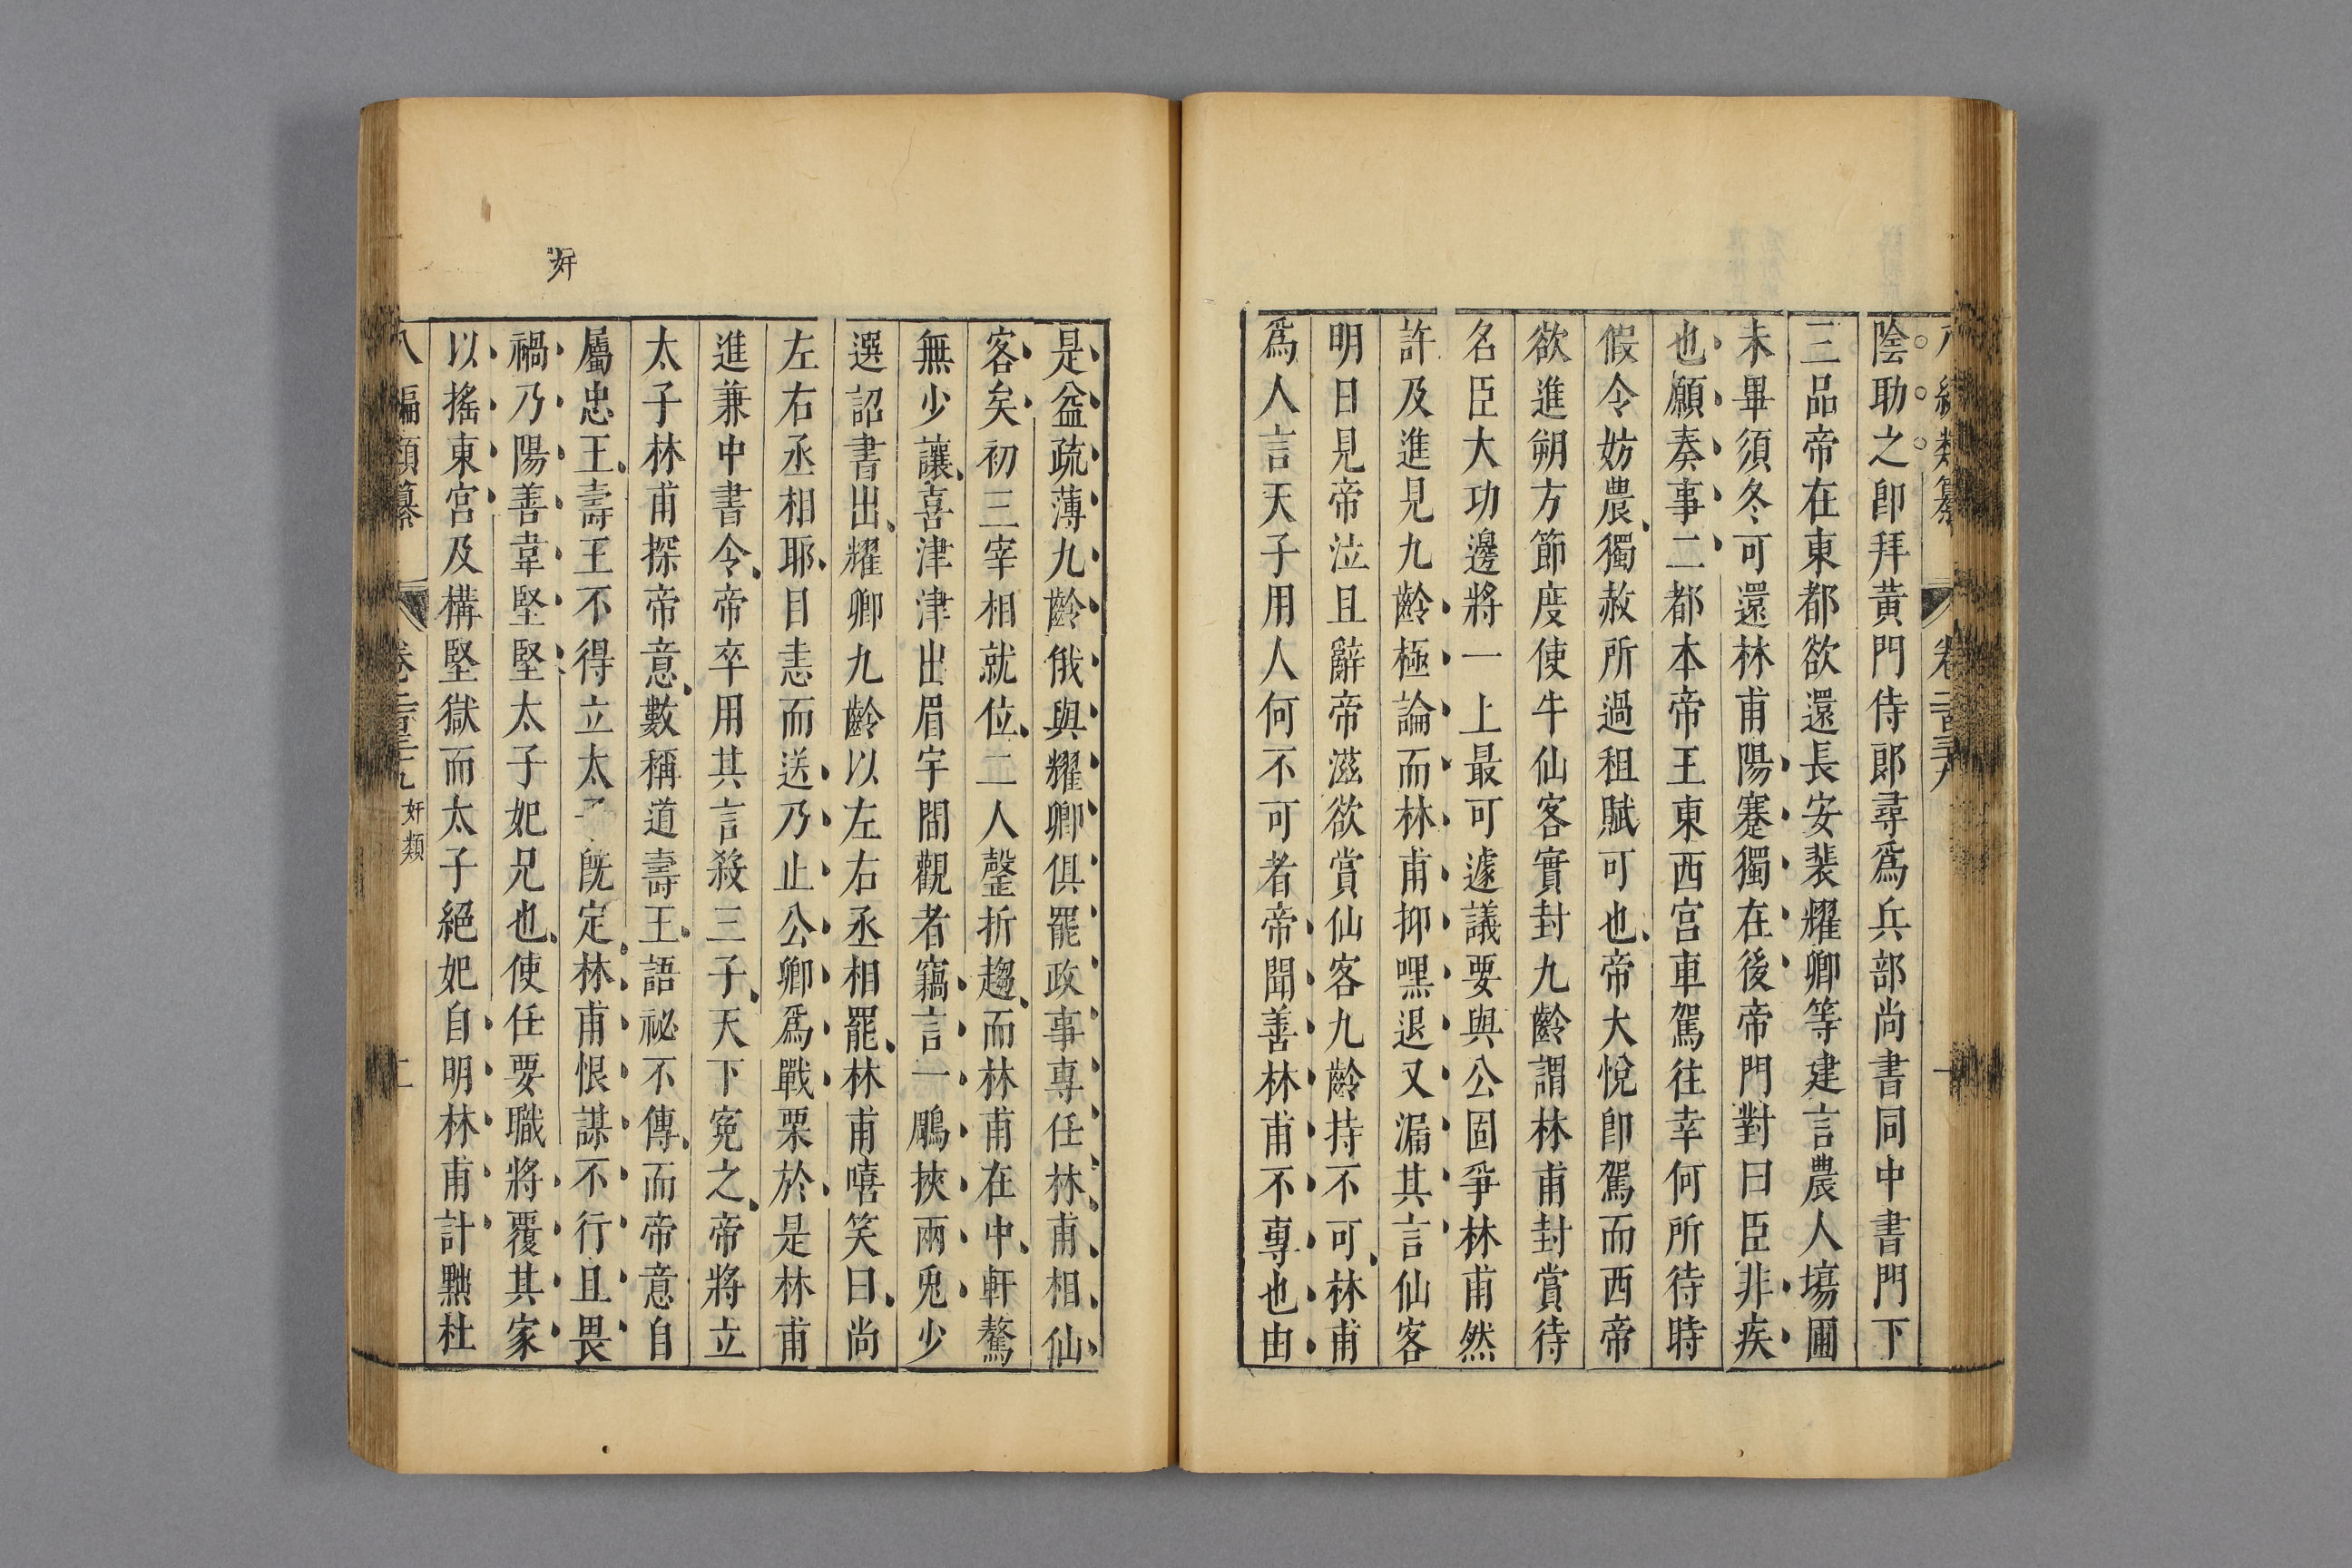 陰助之卽拜黃門侍郎尋爲兵部尚書同中書門下
三品帝在東都欲還長安裴耀卿等建言農人塲圃
未畢須冬可還林甫陽蹇獨在後帝門對曰臣非疾
也願奏事二都本帝王東西宮車駕往幸何所待時
假令妨農獨赦所過租賦可也帝大悅卽駕而西帝
欲進朔方節度使牛仙客實封九齡謂林甫封賞待
名臣大功邊將一上最可遽議要與公固爭林甫然
許及進見九齡極論而林甫抑嘿退又漏其言仙客
明日見帝泣且辭帝滋欲賞仙客九齡持不可林甫
爲人言天子用人何不可者帝聞善林甫不專也由
是益疏薄九齡俄與耀卿俱罷政事專任林甫相仙
客矣初三宰相就位二人罄折趨而林甫在中軒驁
無少讓喜津津出眉宇間觀者竊言一鵰挾兩兎少
選詔書出耀卿九齡以左右丞相罷林甫嘻笑曰尚
左右丞相耶目恚而送乃止公卿爲戰栗於是林甫
進兼中書令帝卒用其言殺三子天下冤之帝將立
太子林甫探帝意數稱道壽王語祕不傳而帝意自
屬忠王壽王不得立太子旣定林甫恨謀不行且畏
禍乃陽善韋堅堅太子妃兄也使任要職將覆其家
以搖東宮及構堅獄而太子絕妃自明林甫計黜杜
八編類纂 卷二百三十九 奸類 二
奸